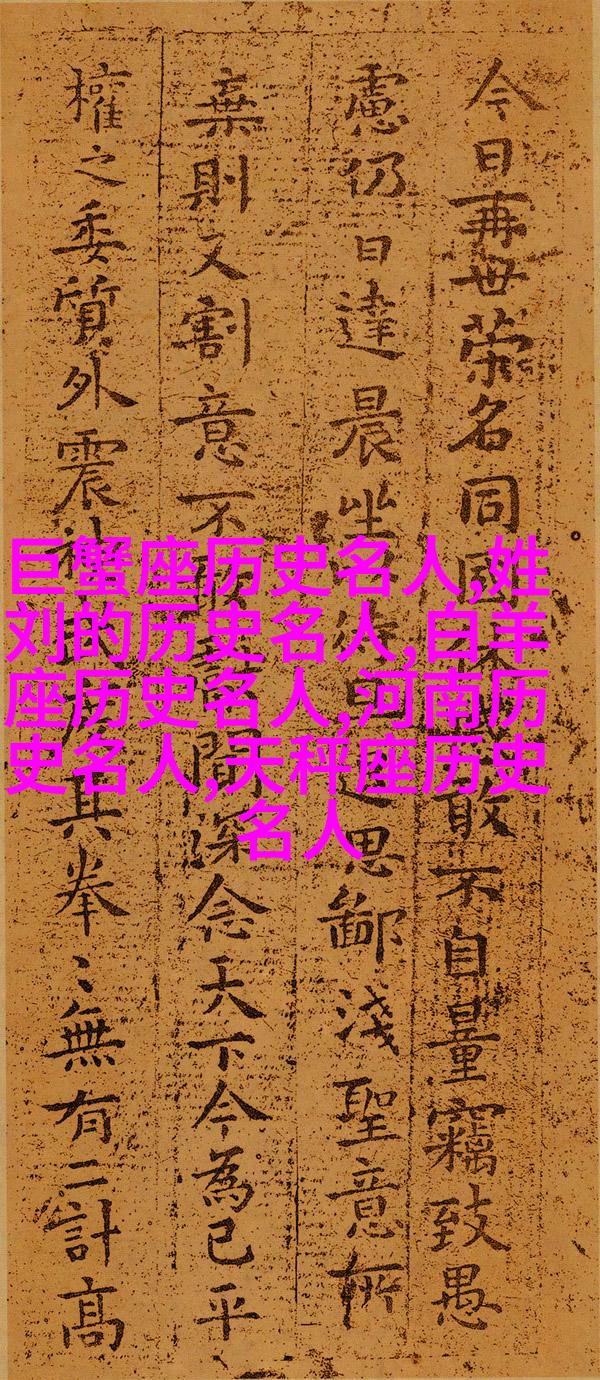 今日再世榮名同國敢不自量竊致愚
慮仍日達晨坐思鄙淺聖意所
棄則又割意不敢聞深念天下今為已平
權之委質外震神其拳〻無有二計高
巨蟹座历史名人,姓
刘的历史名人,白羊
座历史名人,河南历
史名人,天秤座历史
名人